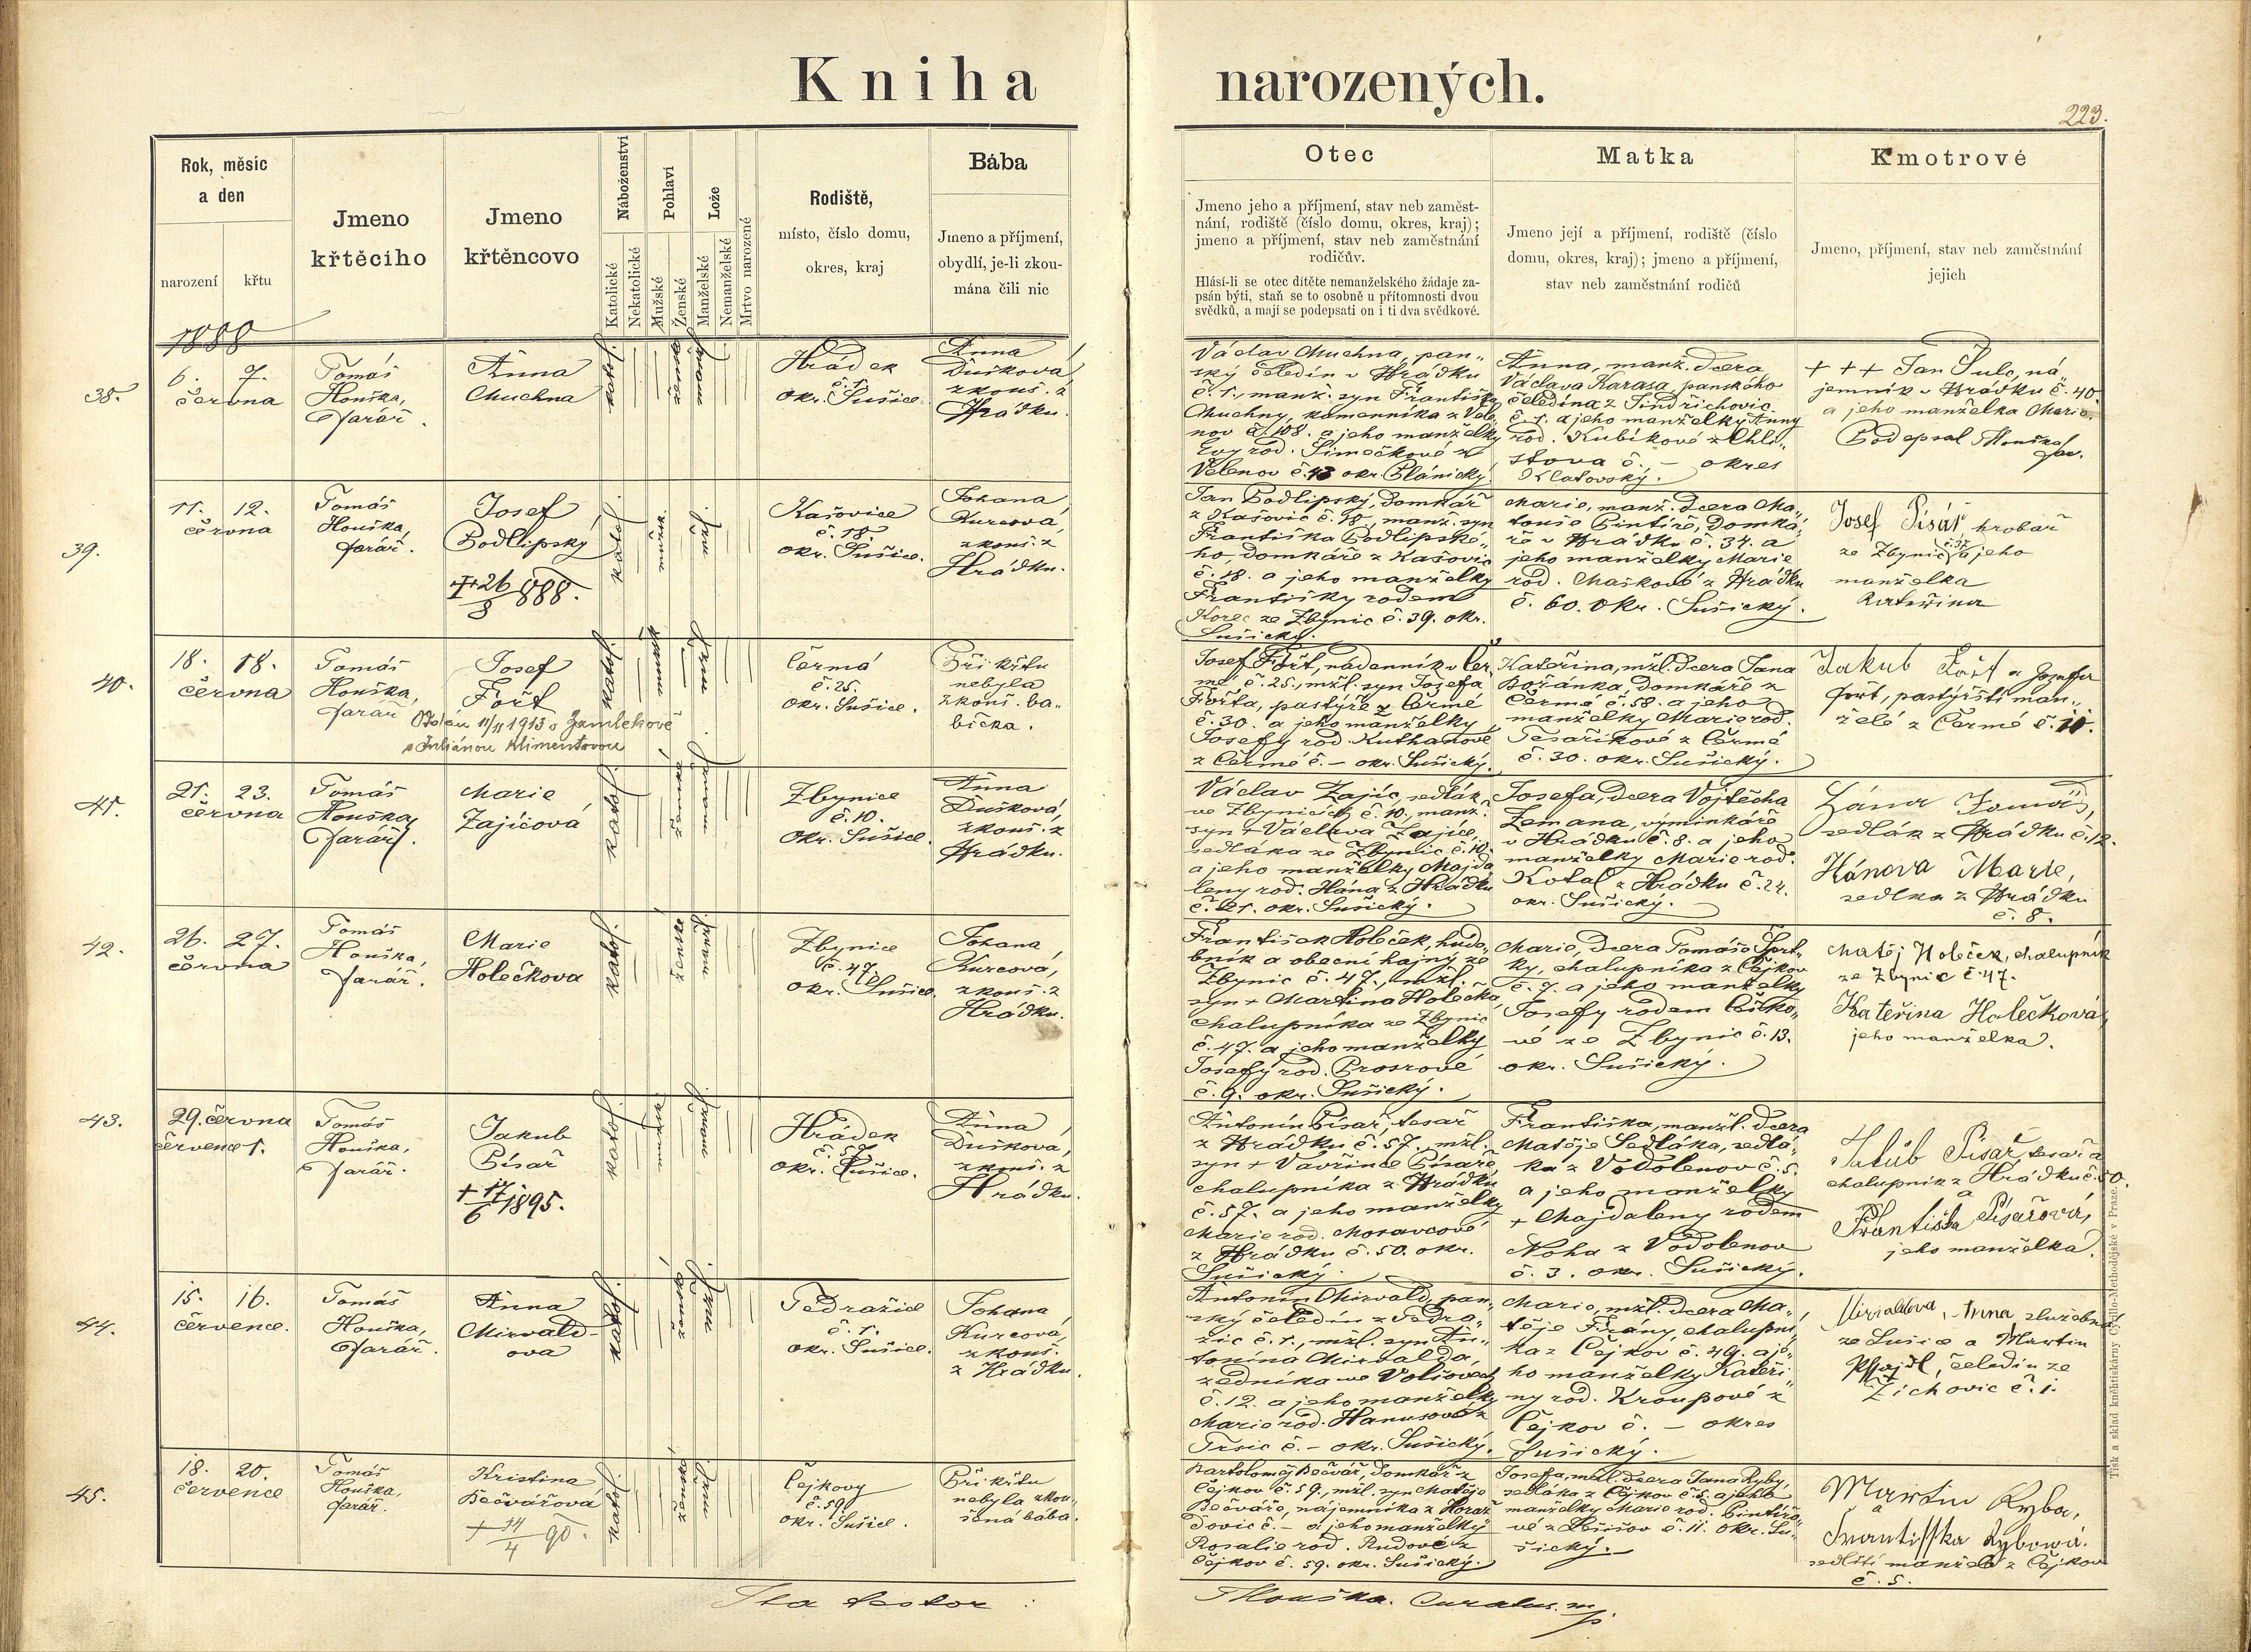 Kniha narozených.
223.
Rok, měsíc
a den
narození
křtu
Jmeno
křtěcího
Jmeno
křtěncovo
Náboženství
Katolické
Nekatolické
Pohlaví
Mužské
Ženské
Lože
Manželské
Nemanželské
Mrtvo narozené
Rodiště,
místo, číslo domu,
okres, kraj
Bába
Jmeno a příjmení,
obydlí, je-li zkou-
mána čili nic
Otec
Jmeno jeho a příjmení, stav neb zaměst-
nání, rodiště (číslo domu, okres, kraj);
jmeno a příjmení, stav neb zaměstnání
rodičův.
Hlásí-li se otec dítěte nemanželského žádaje za-
psán býti, staň se to osobně u přítomnosti dvou
svědků, a mají se podepsati on i ti dva svědkové.
Matka
Jmeno její a příjmení, rodiště (číslo
domu, okres, kraj); jmeno a příjmení,
stav neb zaměstnání rodičů
Kmotrové
Jmeno, příjmení, stav neb zaměstnání
jejich
1888
38.
6. 7.
června
Tomáš
Houška,
farář.
Anna
Muchna
katol.
žensk.
Hrádek
č. 1.
okr. Sušice
Anna
Dušková,
zkouš. z
Hrádku.
Václav Muchna, pan-
ský čeledín v Hrádku
č. 1., manž. syn Františka
Muchny, kamenníka z Vele
nov č. 108. a jeho manželky
Evy rod. Šimečkové z
Velenov č. 43 okr. Plánický.
Anna, manž. dcera
Václava Karasa, panského
čeledína z Jindřichovic
č. 1. a jeho manželky Anny
rod. Kubíkové z Chli-
stova č. – okres
Klatovský.
+++ Jan Šulc, ná-
jemník v Hrádku č. 40
a jeho manželka Marie.
Podepsal THouška
far.
39.
11. 12.
června
Tomáš
Houška,
farář.
Josef
Podlipský
+ 26/8 888.
katol.
mužsk.
Kašovice
č. 18.
okr. Sušice.
Johana
Kurcová,
zkouš. z
Hrádku.
Jan Podlipský, domkář
z Kašovic č. 18., manž. syn
Františka Podlipské-
ho, domkáře z Kašovic
č. 18. a jeho manželky
Františky rodem
Korec ze Zbynic č. 39. okr.
Sušický.
Marie, manž. dcera Ma-
touše Pintíře, domká-
ře v Hrádku č. 34. a
jeho manželky Marie
rod. Maškové z Hrádku
č. 60. okr. Sušický.
Josef Písář hrobař
ze Zbynic č. 37 a jeho
manželka
Kateřina
40.
18. 18.
června
Tomáš
Houška,
farář
Josef
Fořt
Oddán 11/11 1913 v Zamlekově
s Juliánou Klimentovou
katol.
mužsk
Čermá
č. 25.
okr. Sušice.
Při křtu
nebyla
zkouš. ba-
bička.
Josef Fořt, nádenník v Čer
mé č. 25., mžl. syn Josefa
Fořta, pastýře z Čermé
č. 30. a jeho manželky
Josefy rod. Kuthanové
z Čermé č. – okr. Sušický.
Kateřina, mžl. dcera Jana
Bořánka, domkáře z
Čermé č. 58. a jeho
manželky Marie rod.
Tesaříkové z Čermé
č. 30. okr. Sušický.
Jakub Fořt a Josefa
Fořt, pastýřští man-
želé z Čermé č. 10.
41.
21. 23.
června
Tomáš
Houška,
farář.
Marie
Zajícová
katol.
ženské
Zbynice
č. 10.
okr. Sušice.
Anna
Dušková,
zkouš. z
Hrádku.
Václav Zajíc, sedlák
ve Zbynicích č. 10., manž.
syn + Václava Zajíce,
sedláka ze Zbynic č. 10.
a jeho manželky Majda
leny rod. Hána z Hrádku
č. 21. okr. Sušický.
Josefa, dcera Vojtěcha
Zemana, výminkáře
v Hrádku č. 8. a jeho
manželky Marie rod.
Kotal z Hrádku č. 24.
okr. Sušický.
Hána Tomáš,
sedlák z Hrádku č. 12.
Hánova Marie,
sedlka z Hrádku
č. 8.
42.
26. 27.
června
Tomáš
Houška,
farář.
Marie
Holečkova
katol.
ženské
Zbynice
č. 47.
okr. Sušice.
Johana
Kurcová,
zkouš. z
Hrádku.
František Holeček, hudo-
bník a obecní hajný ze
Zbynic č. 47., mžl.
syn + Martina Holečka,
chalupníka ze Zbynic
č. 47. a jeho manželky
Josefy rod. Prosrové
č. 9. okr. Sušický.
Marie, dcera Tomáše
ky, chalupníka z Čejkov
č. 7. a jeho manželky
Josefy rodem Čížko-
vé ze Zbynic č. 13.
okr. Sušický.
Matěj Holeček, chalupník
ze Zbynic č. 47.
Kateřina Holečková,
jeho manželka.
43.
29. června
července 1.
Tomáš
Houška,
farář.
Jakub
Písař
+ 17/6 1895.
katol.
mužsk.
Hrádek
č. 57.
okr. Sušice.
Anna
Dušková,
zkouš. z
Hrádku.
Antonín Písař, tesař
z Hrádku č. 57., mžl.
syn + Vavřince Písaře,
chalupníka z Hrádku
č. 57. a jeho manželky
Marie rod. Moravcové
z Hrádku č. 50. okr.
Sušický.
Františka, manžl. dcera
Matěje Sedláka, sedlá-
ka z Vodolenov č. 5.
a jeho manželky
+ Majdaleny rodem
Noha z Vodolenov
č. 3. okr. Sušický.
Jakub Písař tesař a
chalupník z Hrádku č. 50.
a
Františka Písařová,
jeho manželka.
44.
15. 16.
července.
Tomáš
Houška,
farář.
Anna
Mirvald-
ova
katol.
žensk
Tedražice
č. 1.
okr. Sušice.
Johana
Kurcová,
zkouš.
z Hrádku.
Antonín Mirvald, pan-
ský čeledín z Tedra-
žic č. 1., mžl. syn An-
tonína Mirvalda,
zedníka ve Volšovech
č. 12. a jeho manželky
Marie rod. Hanusové z
Trsic č. – okr. Sušický.
Marie, mžl. dcera Ma-
těje Frány, chalupní-
ka z Čejkov č. 49. a je-
ho manželky Kateři-
ny rod. Kroupové z
Čejkov č. – okres
Sušický.
Mirvaldova, Anna, služebná
ze Sušice a Martin
čeledín ze
Žichovic č. 1.
45.
18. 20.
července
Tomáš
Houška,
farář.
Kristina
Bečvářová
+ 14/4 90.
katol.
žensk.
Čejkovy
č. 59.
okr. Sušice.
Při křtu
nebyla zkou-
šená bába.
Bartoloměj Bečvář, domkář z
Čejkov č. 59., mžl. syn Matěje
Bečváře, nájemníka z Horaž
dovic č. – a jeho manželky
Rosalie rod. Rudové z
Čejkov č. 59. okr. Sušický.
Josefa, mžl. dcera Jana Ryby,
sedláka z Čejkov č. 5. a jeho
manželky Marie rod. Pintířo-
vé z č. 11. okr. Su-
šický.
Martin Ryba,
a
Frantisska Rybová.
sedlští manželé z Čejkov
č. 5.
Ita testor:
THouška. Curatus. mp.
Tisk a sklad knihtiskárny Cyrillo-Methodějské v Praze.